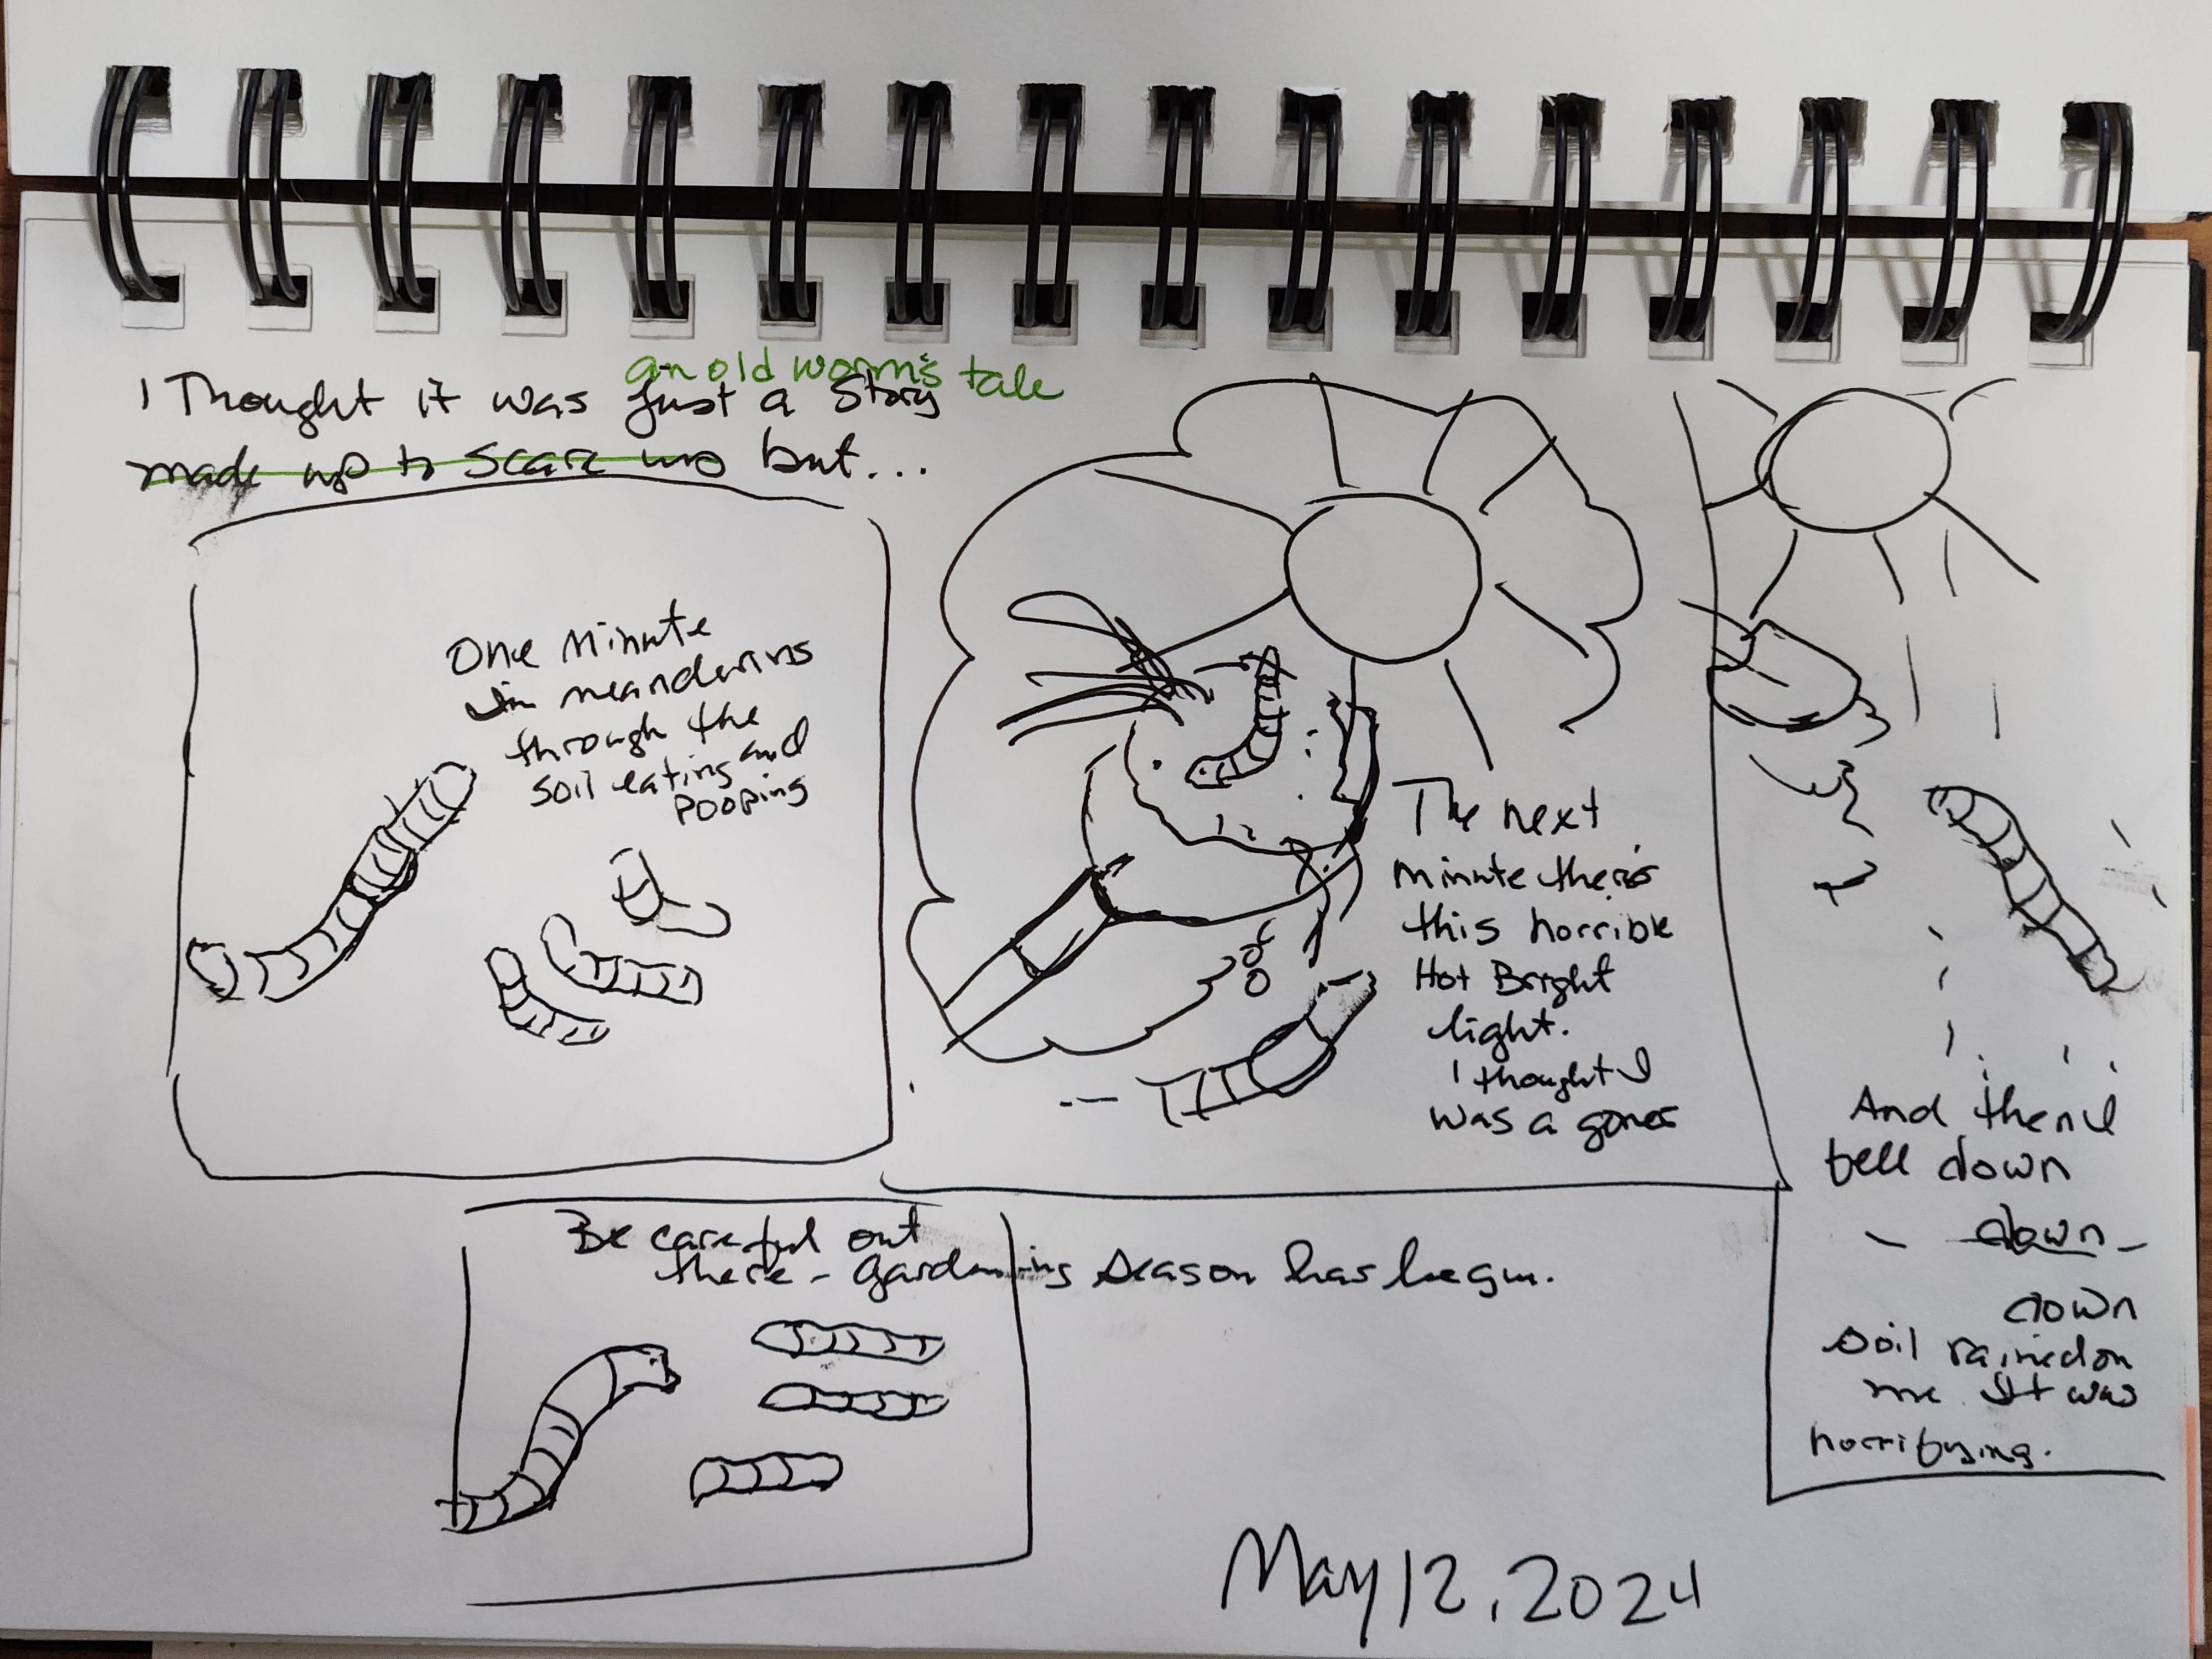 an old worm's tale
I Thought it was just a story
made up to scare us but...
One minute
I'm meandering
through the
soil eating and
pooping
The next
minute there's
this horrible
Hot Bright
light.
I thought I
was a goner
And then I
fell down
- down -
down
soil rained on
me. It was
horrifying.
Be careful out
there - gardening season has begun.
May 12, 2024